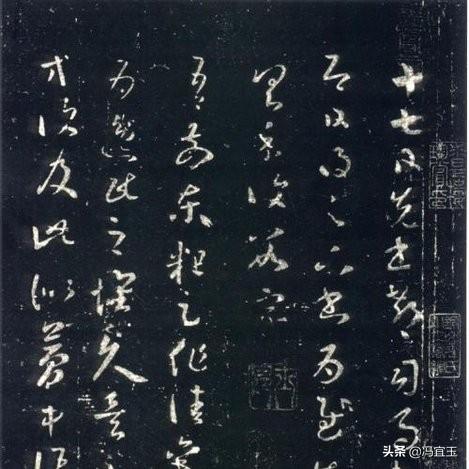 十七日先書郗司馬
即日得足下書為慰
具示復數字
吾前東粗足作佳觀
為逸民之懷久矣足
方復及此似夢中語
头条 @冯宜玉